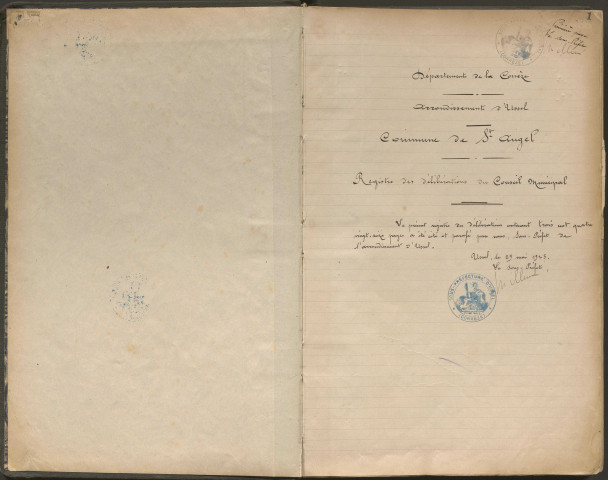 1
Département de la Corrèze
Arrondissement d'Ussel
Commune de St Angel
Registre des délibérations du Conseil Municipal
Le présent registre des délibérations contenant trois cent quatre
vingt-seize pages a été coté et parafé par nous, Sous-Préfet de
l'arrondissement d'Ussel.
Ussel, le 29 mai 1925
Le Sous-Préfet,
SOUS-PRÉFECTURE D'USSEL